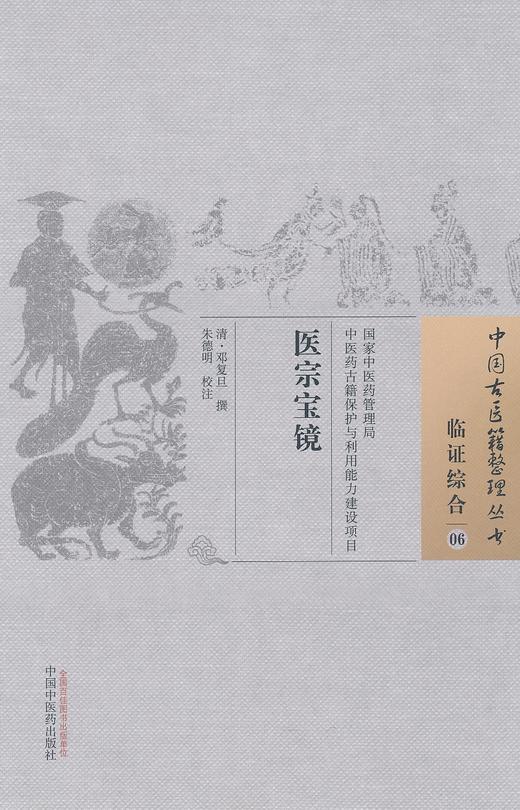 中国古医籍整理丛书
临证综合
06
国家中医药管理局
中医药古籍保护与利用能力建设项目
医宗宝镜
清·邓复旦 撰
朱德明 校注
全国百佳图书出版单位
中国中医药出版社